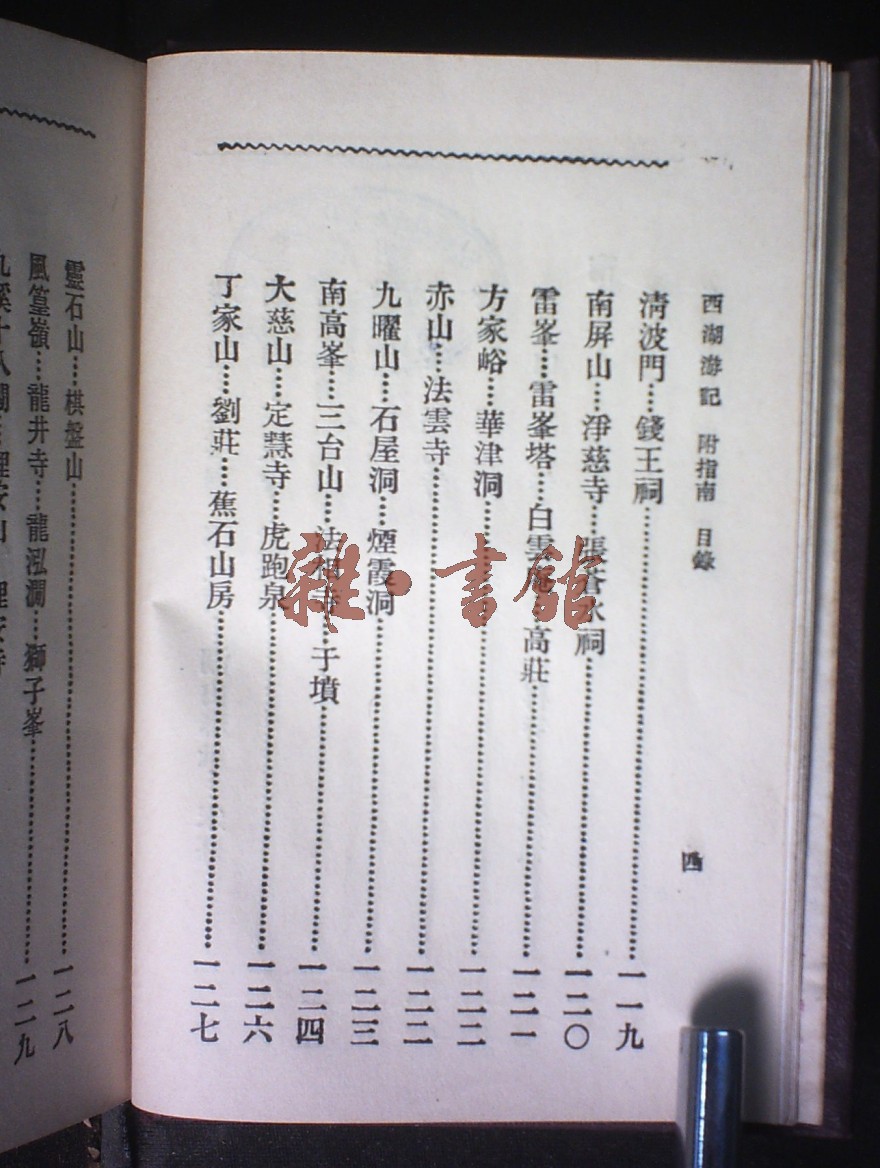 西湖游記 附指南 目錄
四
清波門……錢王祠……一一九
南屏山……淨慈寺……張蒼水祠……一二〇
雷峯……雷峯塔……白雲庵……高莊……一二一
方家峪……華津洞……一二二
赤山……法雲寺……一二二
九曜山……石屋洞……煙霞洞……一二三
南高峯……三台山……法相寺……于墳……一二四
大慈山……定慧寺……虎跑泉……一二六
丁家山……劉莊……蕉石山房……一二七
靈石山……棋盤山……一二八
風篁嶺……龍井寺……龍泓澗……獅子峯……一二九
雜·書館